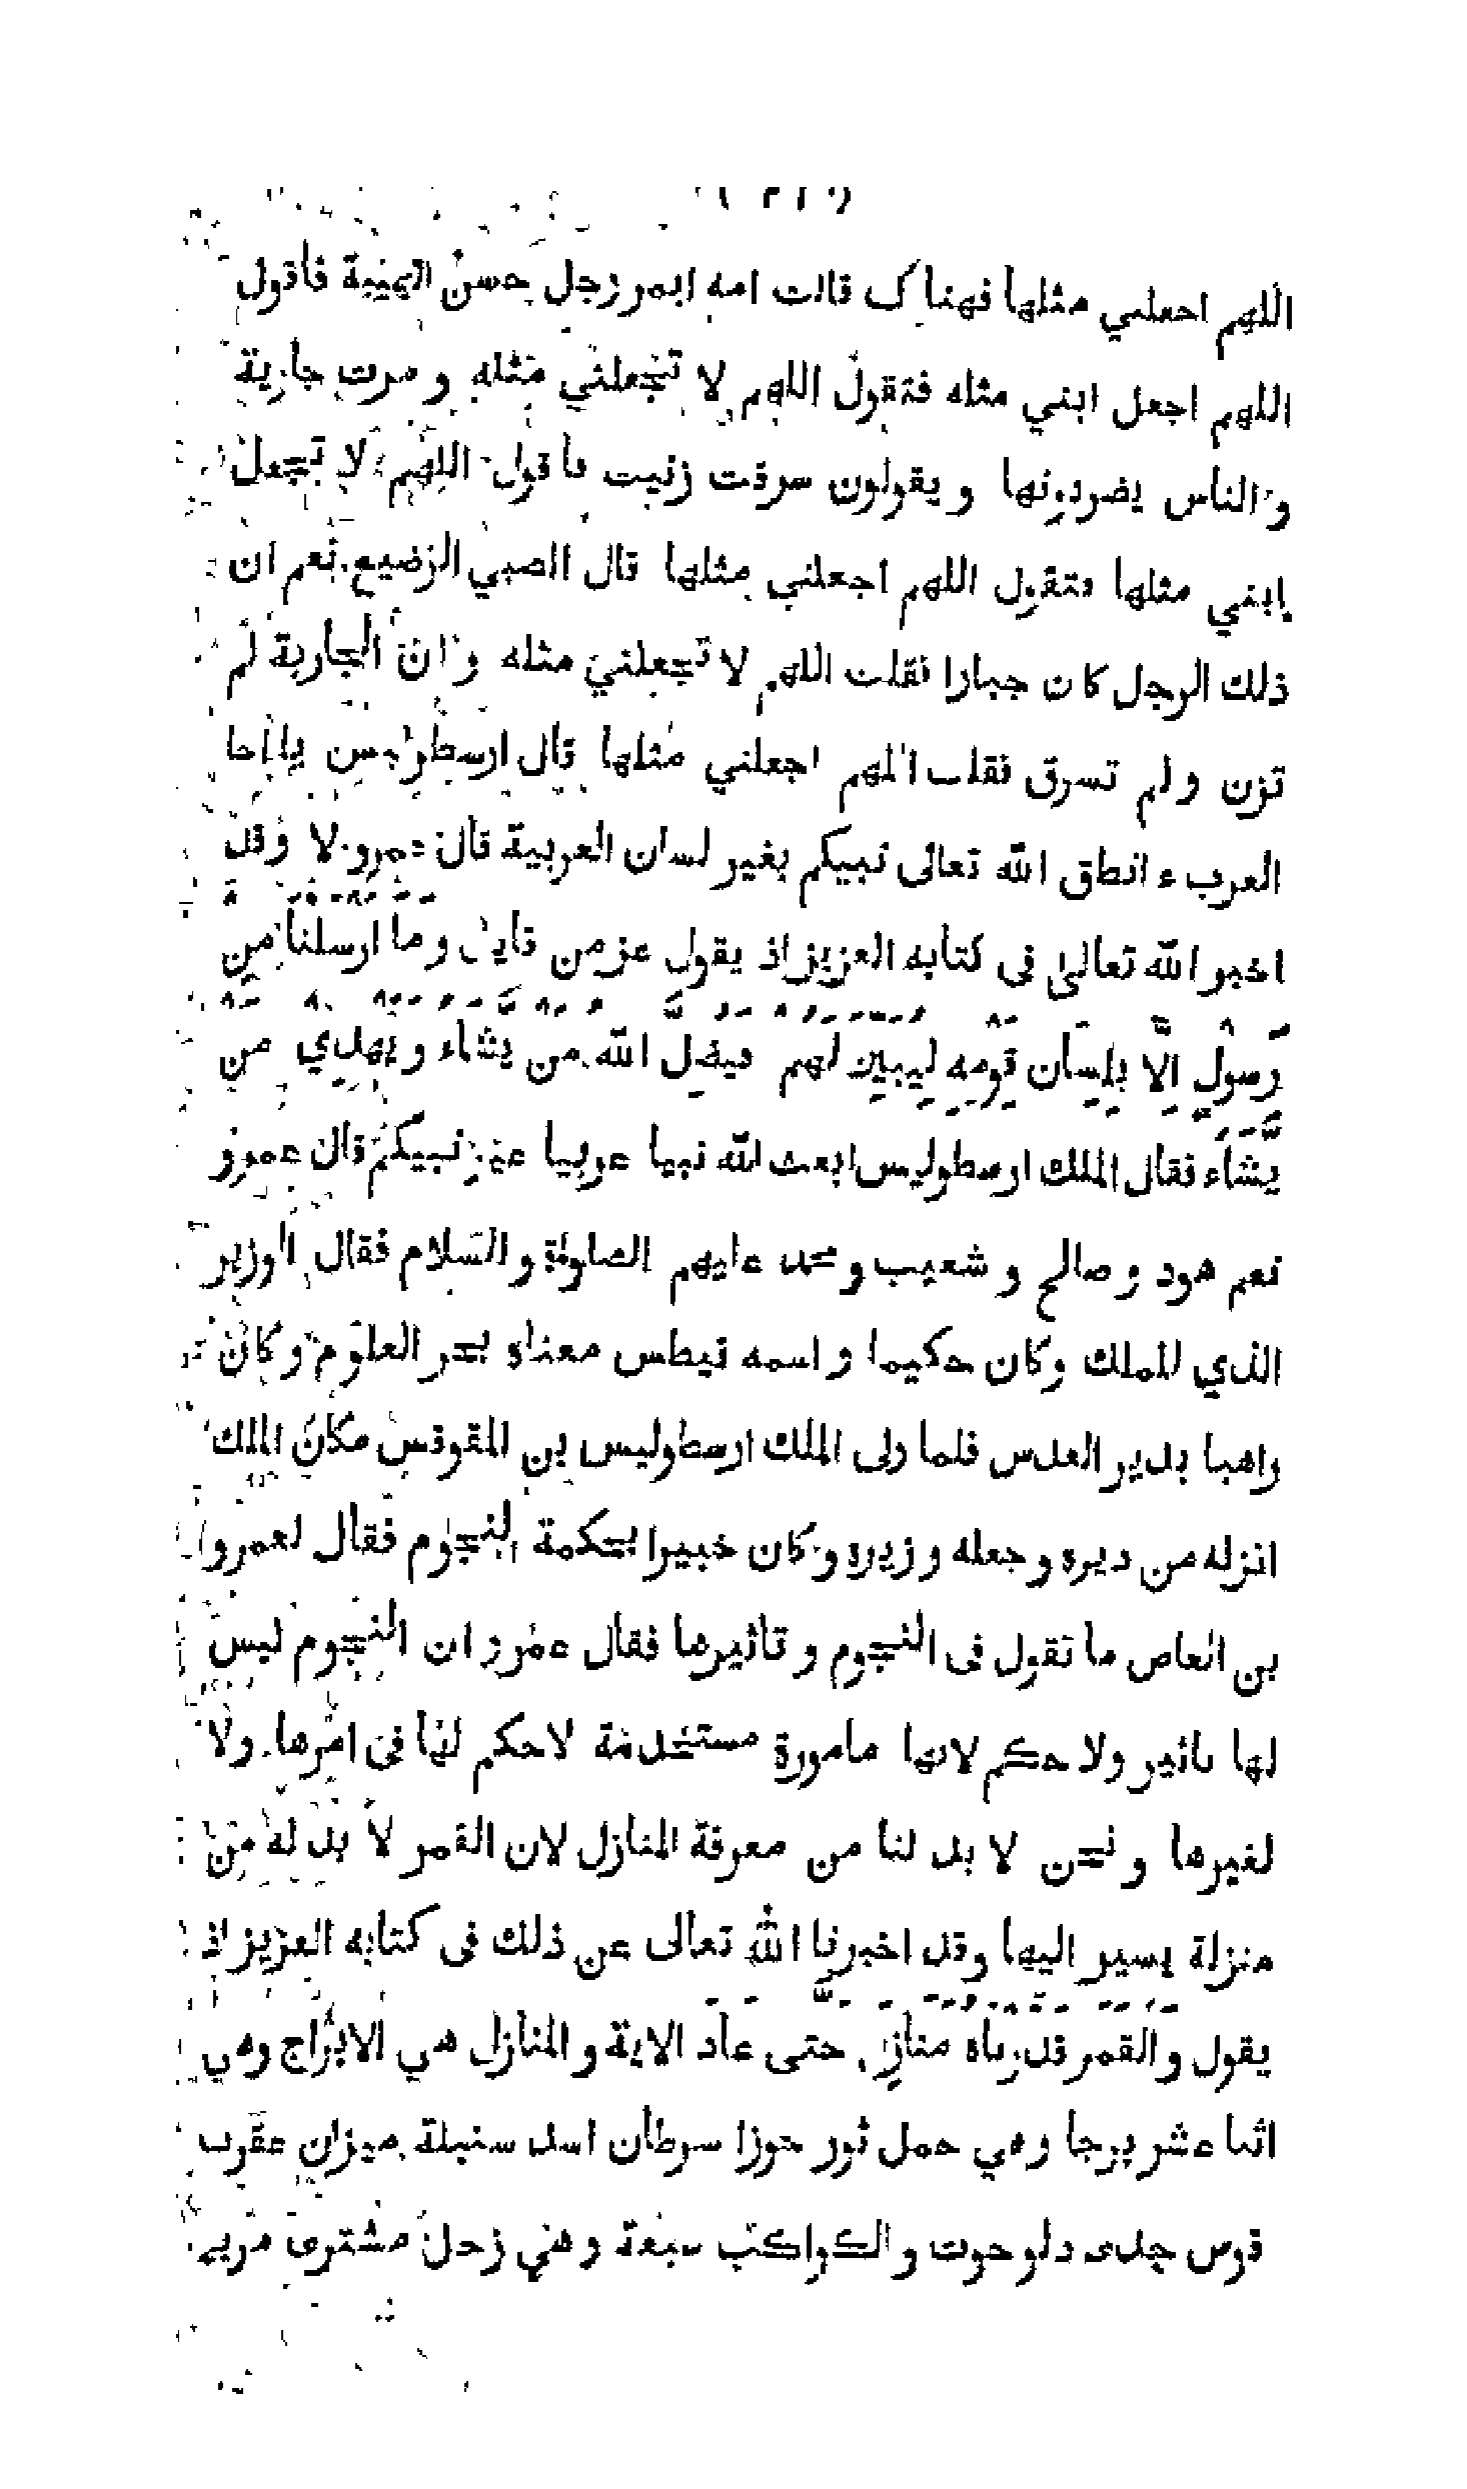 اللهم اجعلني مثلها فهناك قالت امه ابمر رجل حسن الهيئة فاقول
اللهم اجعل ابني مثله فتقول اللهم لا تجعلني مثله و مرت جارية
و الناس يضربونها و يقولون سرقت زنيت فاقول اللهم لا تجعل
ابني مثلها فتقول اللهم اجعلني مثلها قال الصبي الرضيع نعم ان
ذلك الرجل كان جبارا فقلت اللهم لا تجعلني مثله و ان الجارية لم
تزن و لم تسرق فقلت اللهم اجعلني مثلها قال ارسطوليس يا اخا
العرب ء انطق الله تعالى نبيكم بغير لسان العربية قال عمرو لا وقد
اخبر الله تعالى فى كتابه العزيز اذ يقول عز من قايل وَمَا اَرْسَلْنَا مِنْ
رَسُولٍ اِلَّا بِلِسَانِ قَوْمِهِ لِيُبَيِّنَ لَهُمْ فَيُضِلُّ اللهُ مَنْ يَشَاءُ وَيَهْدِي مَنْ
يَّشَاءُ فقال الملك ارسطوليس ابعث الله نبيا عربيا غير نبيكم قال عمرو
نعم هود و صالح و شعيب و محمد عليهم الصلوة و السلام فقال الوزير
الذي للملك وكان حكيما و اسمه نيطس معناه بحر العلوم وكان
راهبا بدير العدس فلما ولى الملك ارسطوليس بن المقوقس مكان الملك
انزله من ديره و جعله وزيره و كان خبيرا بحكمة النجوم فقال لعمرو
بن العاص ما تقول فى النجوم و تاثيرها فقال عمرو ان النجوم ليس
لها تاثير ولا حكم لانها مامورة مستخدمة لا حكم لها فى امرها ولا
لغيرها و نحن لا بد لنا من معرفة المنازل لان القمر لا بد له من
منزلة يسير اليها وقد اخبرنا الله تعالى عن ذلك فى كتابه العزيز اذ
يقول وَالْقَمَرَ قَدَّرْنَاهُ مَنَازِلَ حَتَّى عَادَ الاية و المنازل هي الابراج وهي
اثنا عشر برجا وهي حمل ثور جوزا سرطان اسد سنبلة ميزان عقرب
قوس جدى دلو حوت و الكواكب سبعة و هي زحل مشترى مريخ